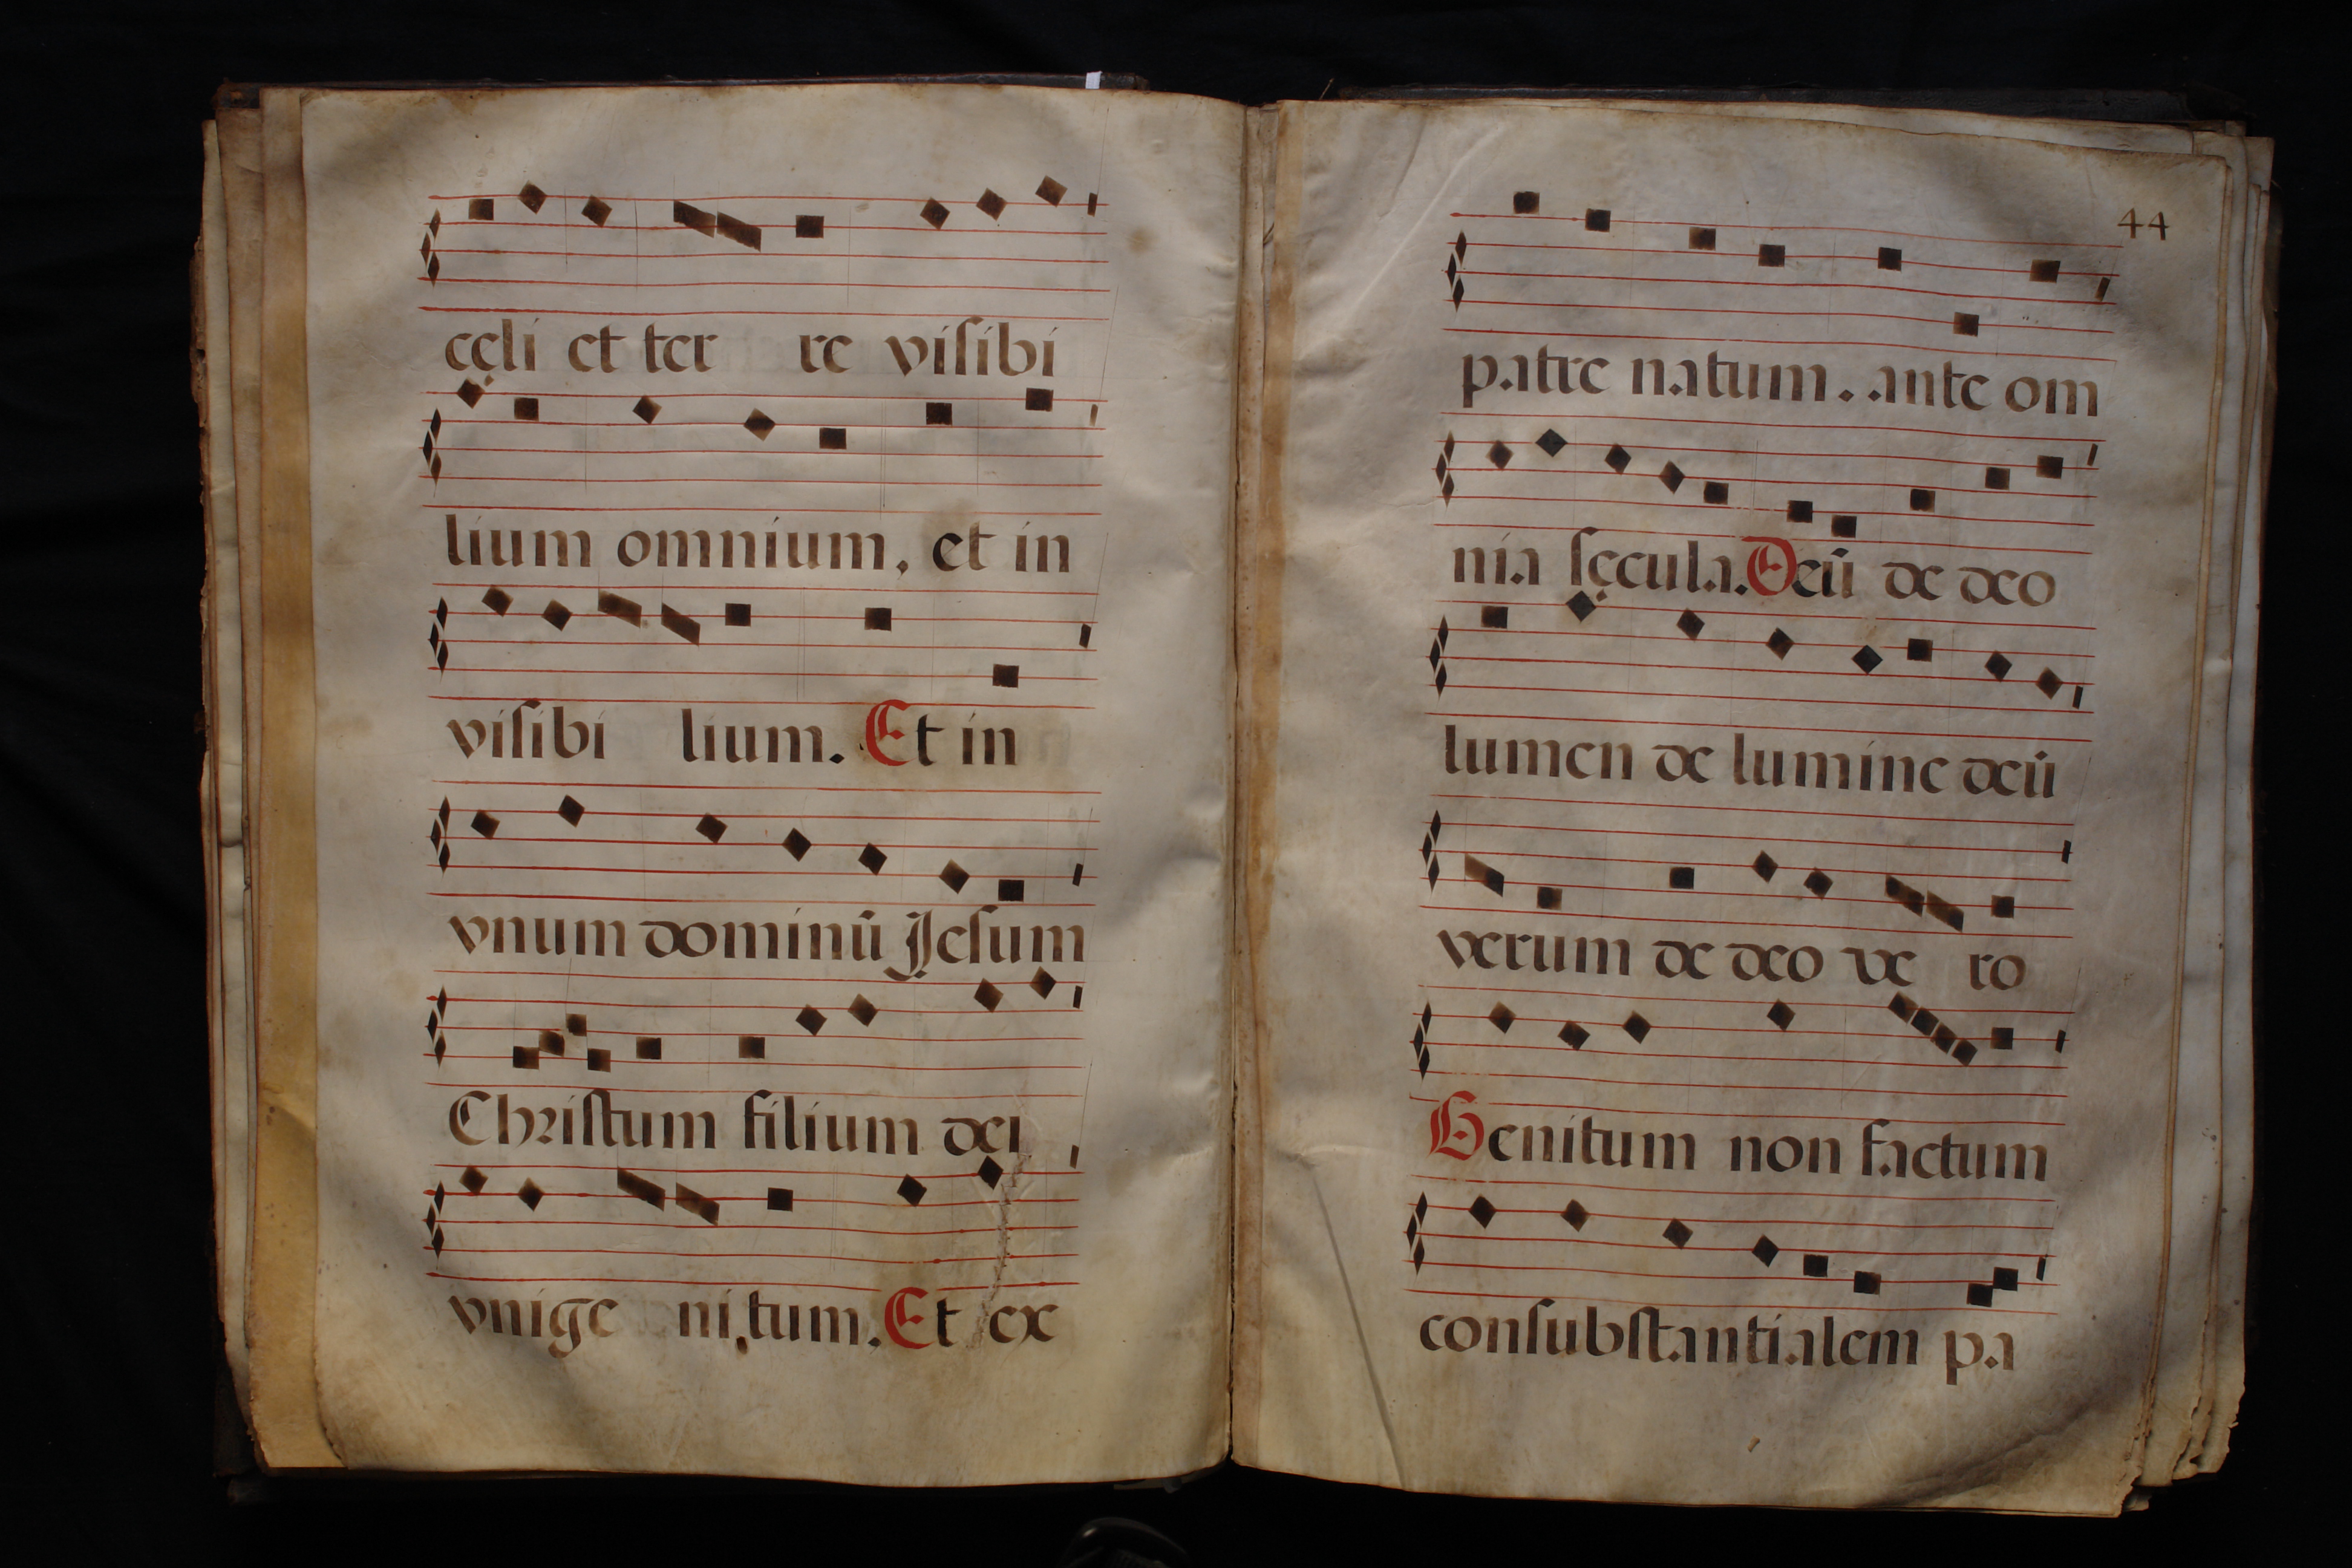 cęli et ter re viſibi
lium omnium, et in
viſibi lium. Et in
vnum dominū Jeſum
Chriſtum filium dei
vnige ni tum. Et ex
44
patre natum. ante om
nia ſęcula. Deū de deo
lumen de lumine deū
verum de deo ve ro
Genitum non factum
conſubſtantialem pa